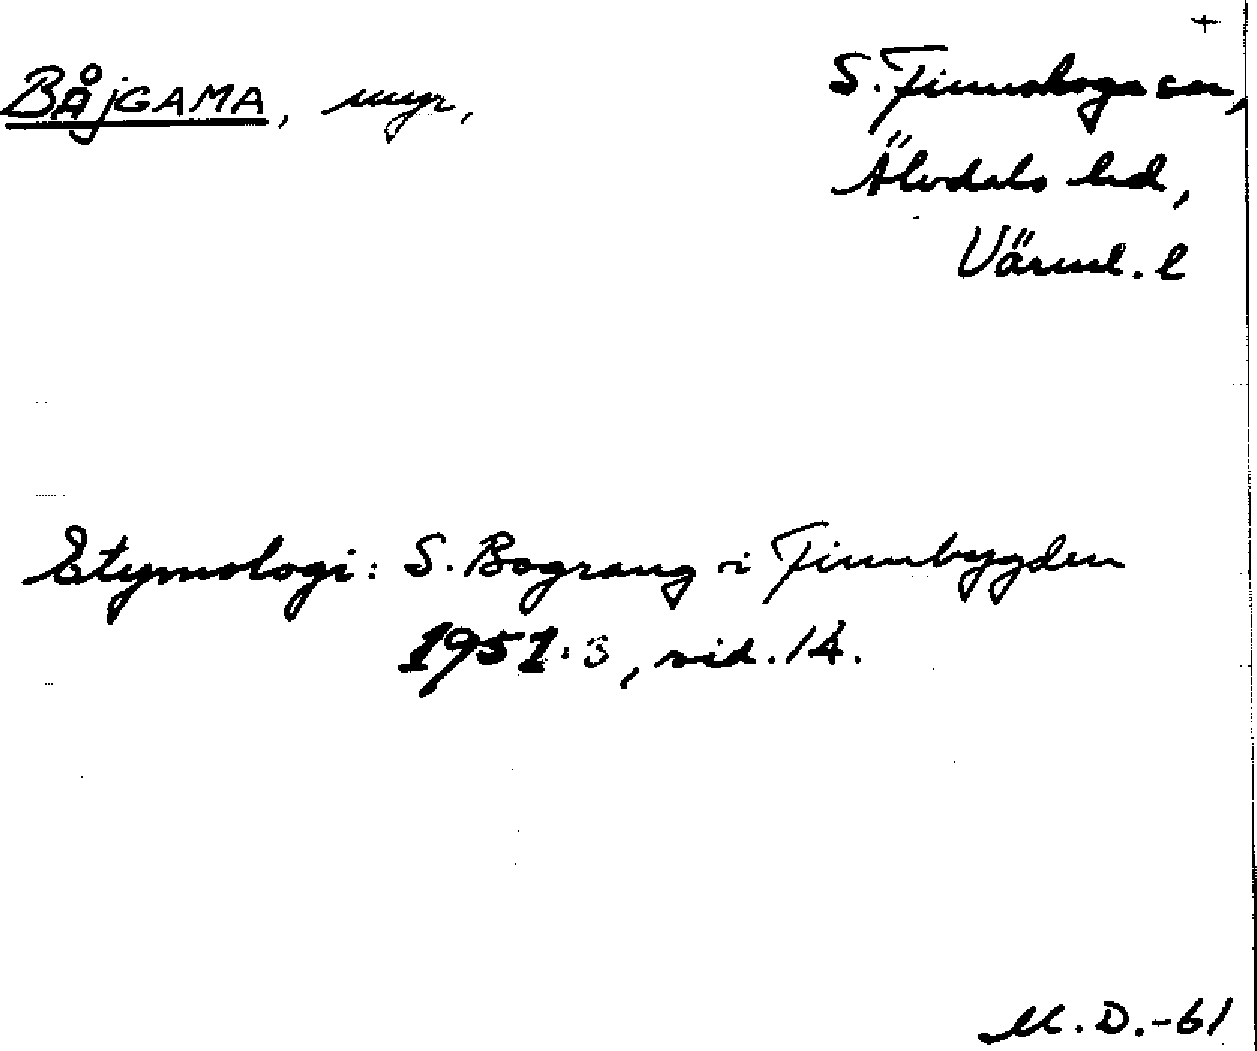 +
BÅJGAMA, myr,
S. Finnskoga sn,
Älvdals hd,
Värml. l
Etymologi: S. Bograng i Finnbygden
1951:3, sid. 14.
M. D. -61